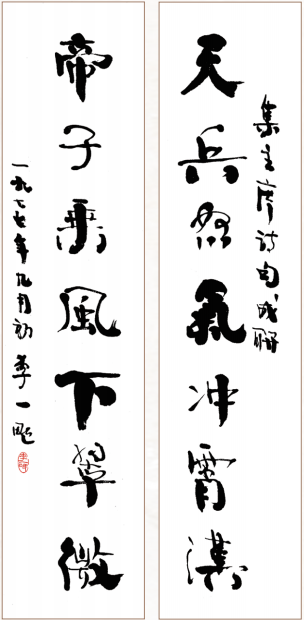 集主席诗句成联
天兵怒氣冲霄漢
帝子乘風下翠微
一九七七年九月初 李一氓